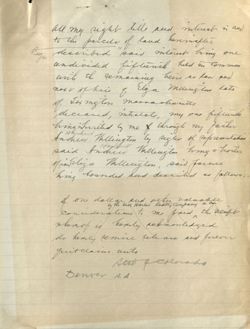 All my right title and interest in and
to the parcels of land hereinafter
described said interest being one
undivided fifteenth held in common
with the remaining heirs as law and
next of kin of Eliza Wellington late
of Lexington Massachusetts
deceased, intestate, my one fifteenth
being inherited by me through my father
Andrew Wellington by right of representation
said Andrew Wellington being a brother
of Eliza Wellington said parcels
being bounded and described as follows:
of one dollar and other valuable
considerations to me paid, the receipt
whereof is hereby acknowledged
do hereby remise release and forever
quitclaim unto
State of Colorado
Denver